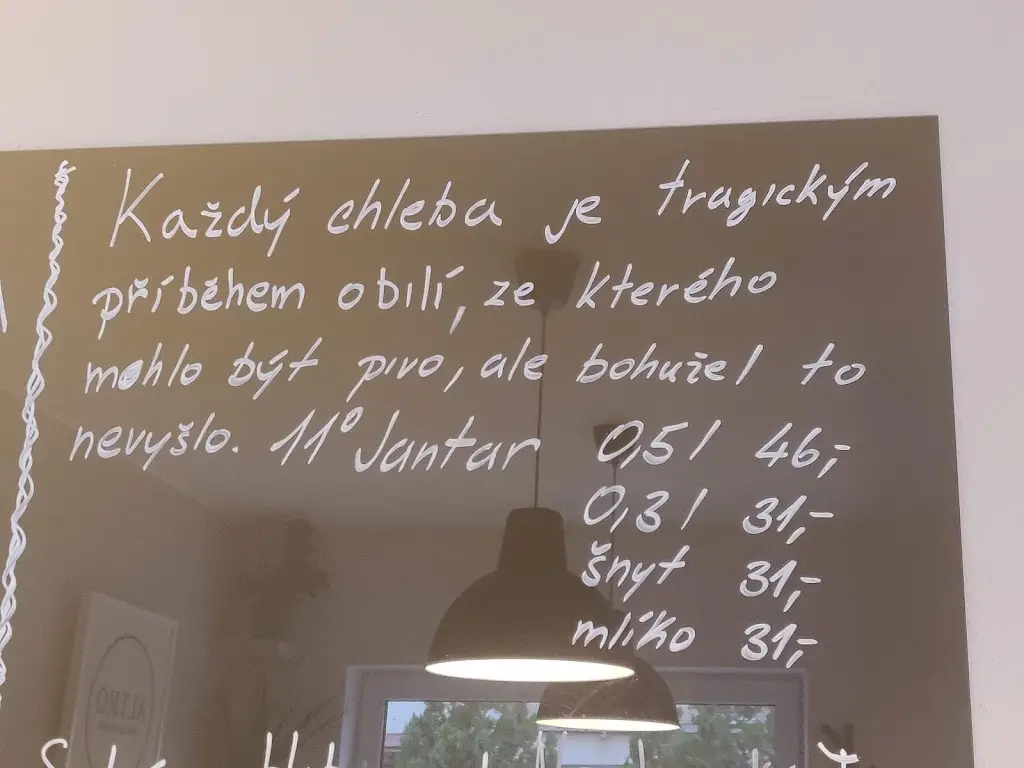 Každý chleba je tragickým
příběhem obilí, ze kterého
mohlo být pivo, ale bohužel to
nevyšlo. 11° Jantar 0,5l 46,-
0,3l 31,-
šnyt 31,-
mlíko 31,-